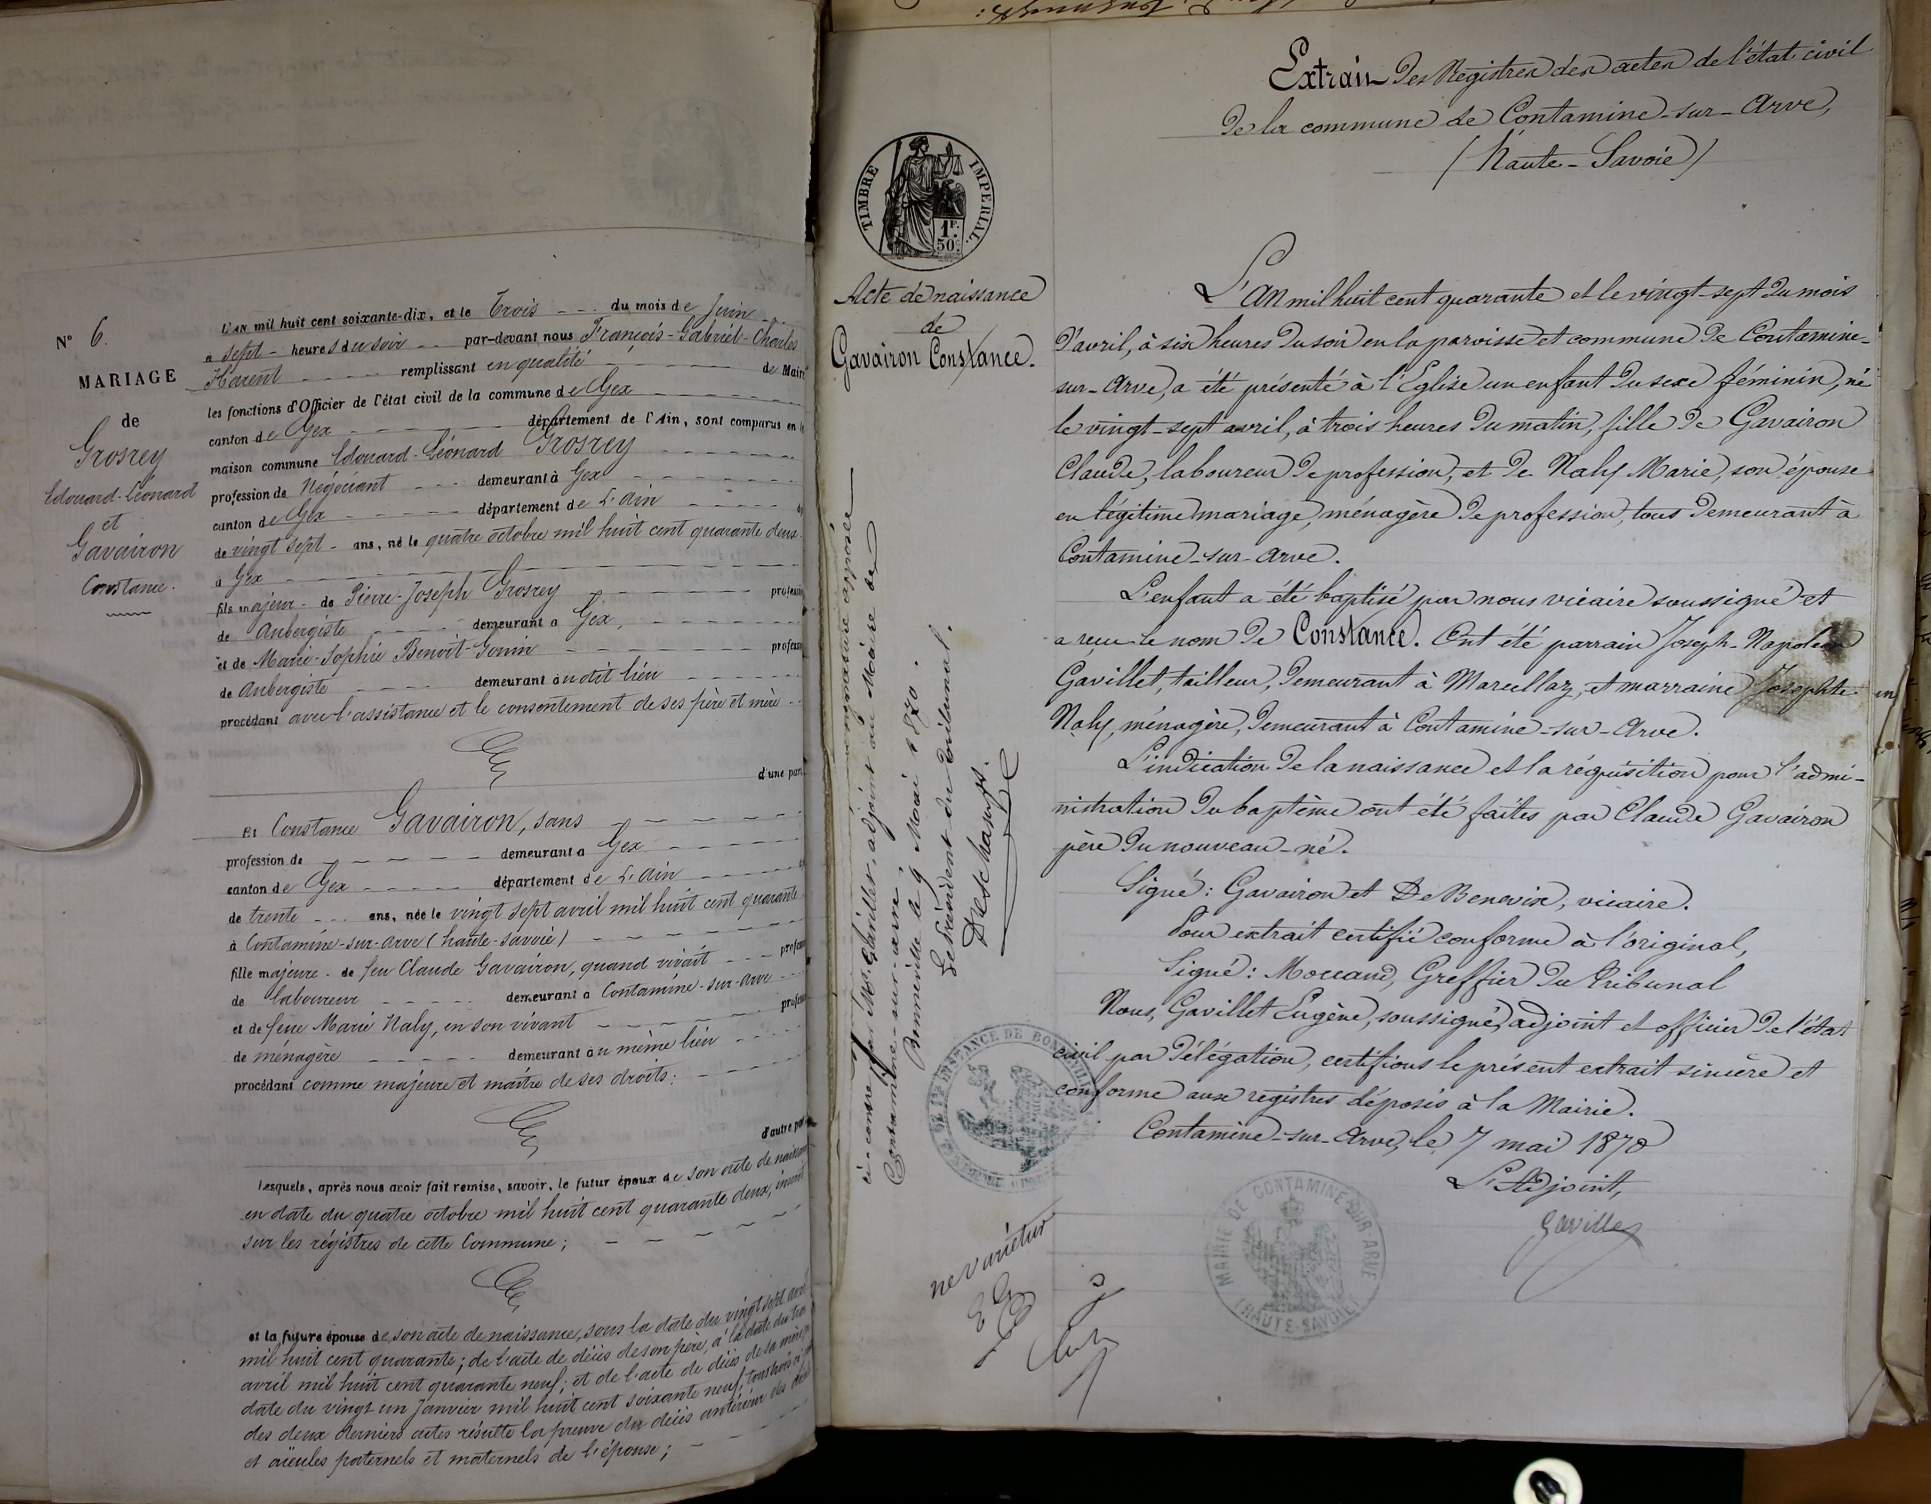 N° 6.
MARIAGE
de
Grosrey
Edouard-Léonard
et
Gavairon
Constance.
L'AN mil huit cent soixante-dix, et le Trois du mois de Juin
a sept heures du soir par-devant nous François-Gabriel-Charles
Harent remplissant en qualité de Maire
les fonctions d'Officier de l'état civil de la commune de Gex
canton de Gex département de l'Ain, sont comparus en la
maison commune Edouard-Léonard Grosrey
profession de Négociant demeurant à Gex
canton de Gex département de L'Ain
de vingt sept ans, né le quatre octobre mil huit cent quarante deux
à Gex
fils majeur de Pierre-Joseph Grosrey
de Aubergiste demeurant a Gex,
et de Marie-Sophie Benoit-Gonin
de Aubergiste demeurant au dit lieu
procédant avec l'assistance et le consentement de ses père et mère
d'une part
Et Constance Gavairon, sans
profession de demeurant a Gex
canton de Gex département de L'Ain
de trente ans, née le vingt sept avril mil huit cent quarante
à Contamine-sur-Arve (haute-Savoie)
fille majeure de feu Claude Gavairon, quand vivait
de laboureur demeurant a Contamine-sur-Arve
et de feue Marie Naly, en son vivant
de ménagère demeurant au même lieu
procédant comme majeure et maître de ses droits;
d'autre part
Lesquels, après nous avoir fait remise, savoir, le futur époux de son acte de naissance
en date du quatre octobre mil huit cent quarante deux, inscrit
sur les régistres de cette Commune;
et la future épouse de son acte de naissance, sous la date du vingt sept avril
mil huit cent quarante; de l'acte de décès de son père, à la date du
avril mil huit cent quarante neuf; et de l'acte de décès de sa mère
date du vingt un Janvier mil huit cent soixante neuf,
des deux derniers actes résulte la preuve du décès antérieur des
et aïeules paternels et maternels de l'épouse;
TIMBRE IMPERIAL.
1F.
50c.
Acte de naissance
de
Gavairon Constance.
Extrait Des Registres des actes de l'état civil
De la commune de Contamine-sur-Arve,
(Haute-Savoie)
L'AN mil huit cent quarante et le vingt-sept du mois
d'avril, à six heures du soir en la paroisse et commune de Contamine-
sur-Arve, a été présenté à l'Eglise un enfant du sexe féminin, né
le vingt-sept avril, à trois heures du matin, fille de Gavairon
Claude, laboureur de profession, et de Naly Marie, son épouse
en légitime mariage, ménagère de profession, tous demeurant à
Contamine-sur-Arve.
L'enfant a été baptisé par nous vicaire soussigné et
a reçu le nom de Constance. Ont été parrain Joseph-Napoléon
Gavillet, tailleur, demeurant à Marcellaz, et marraine Josephte
Naly, ménagère, demeurant à Contamine-sur-Arve.
L'indication de la naissance et la réquisition pour l'admi-
nistration du baptême ont été faites par Claude Gavairon
père du nouveau-né.
Signé: Gavairon et De Benevix, vicaire.
Pour extrait certifié conforme à l'original,
Signé: Moccand, Greffier du Tribunal
Nous, Gavillet Eugène, soussigné, adjoint et officier de l'état
civil par délégation, certifions le présent extrait sincère et
conforme aux registres déposés à la Mairie.
Contamine-sur-Arve, le 7 mai 1870
L'Adjoint,
Gavillet
MAIRIE DE CONTAMINE-SUR-ARVE
(HAUTE-SAVOIE)
signature apposée
ci-contre par Mr. Gavillet, adjoint au Maire de
Contamine-sur-arve.
Bonneville le 9 Mai 1870.
Le Président du tribunal.
Deschamps.
ne varietur